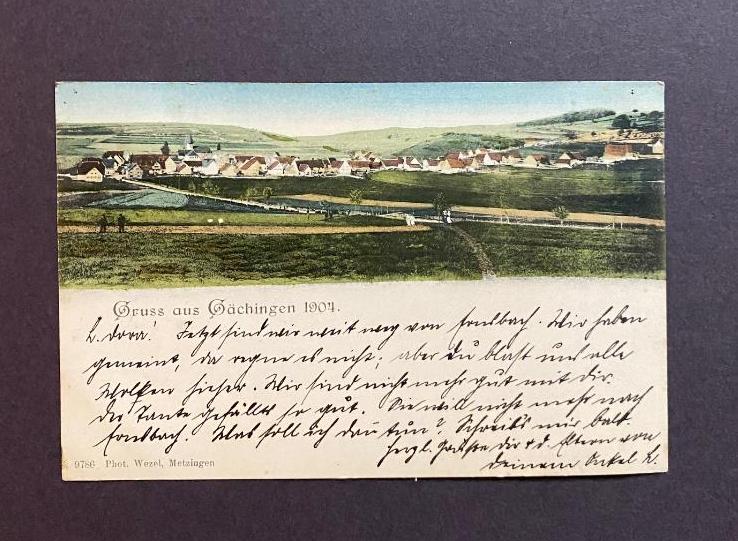 Gruss aus Gächingen 1904.
L. Dora! Jetzt sind wir weit weg von Ernsbach. Wir haben
gemeint, da regne es nicht; aber du blast uns alle
Wolken hieher. Wir sind nicht mehr gut mit dir.
Der Tante gefällts so gut. Sie will nicht mehr nach
Ernsbach! Was soll ich da tun? Schreib's mir bald.
Herzl. Grüße dir & d. Eltern von
deinem Onkel
9786 Phot. Wezel, Metzingen